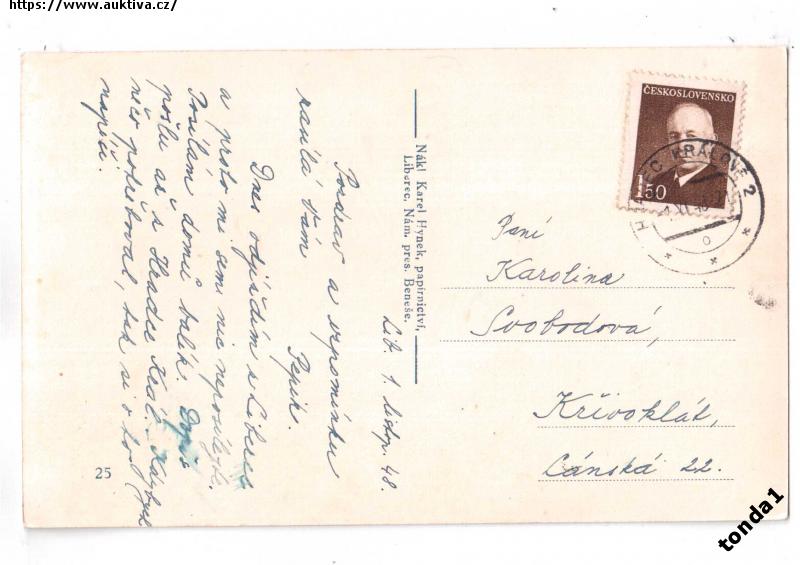 https://www.auktiva.cz/
Lib. 1. listop. 48.
Pozdrav a vzpomínku
zasílá Vám
Pepík.
Dnes odjíždím z Liberce
a proto mi sem nic neposílejte.
Posílám domů balík. Dopis
pošlu až z Hradce Král. Kdybych
něco potřeboval, tak si o to
napíši.
25
Nákl. Karel Hynek, papírnictví,
Liberec, Nám. pres. Beneše.
ČESKOSLOVENSKO
1.50
KRÁLOVÉ 2
Paní
Karolina
Svobodová,
Křivoklát,
Lánská 22.
tonda1